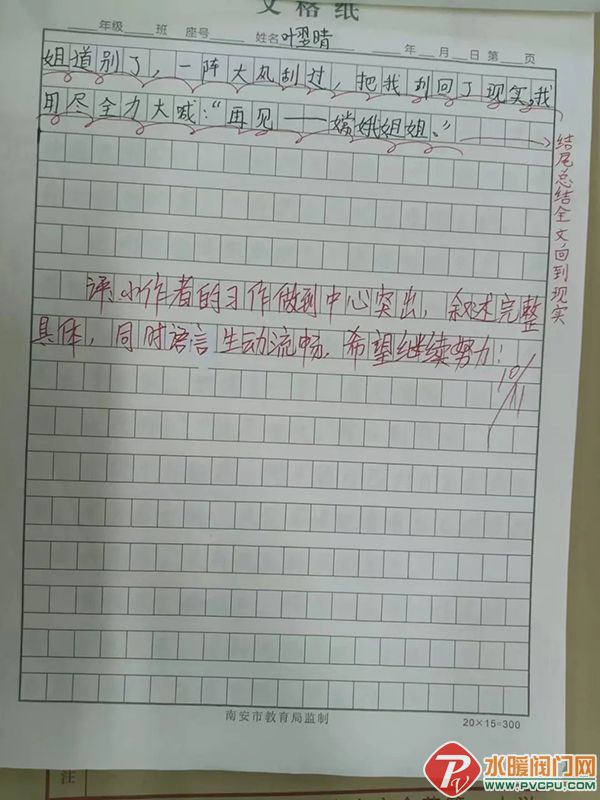 文格纸
年级 班 座号 姓名叶翌晴 年 月 日 第 页
姐道别了，一阵大风刮过，把我刮回了现实，我
用尽全力大喊：“再见——嫦娥姐姐。”
结尾总结全文，回到现实
评：小作者的习作做到中心突出，叙述完整
具体，同时语言生动流畅，希望继续努力！
10/11
南安市教育局监制
20×15=300
注
水暖阀门网
WWW.PVCPU.COM